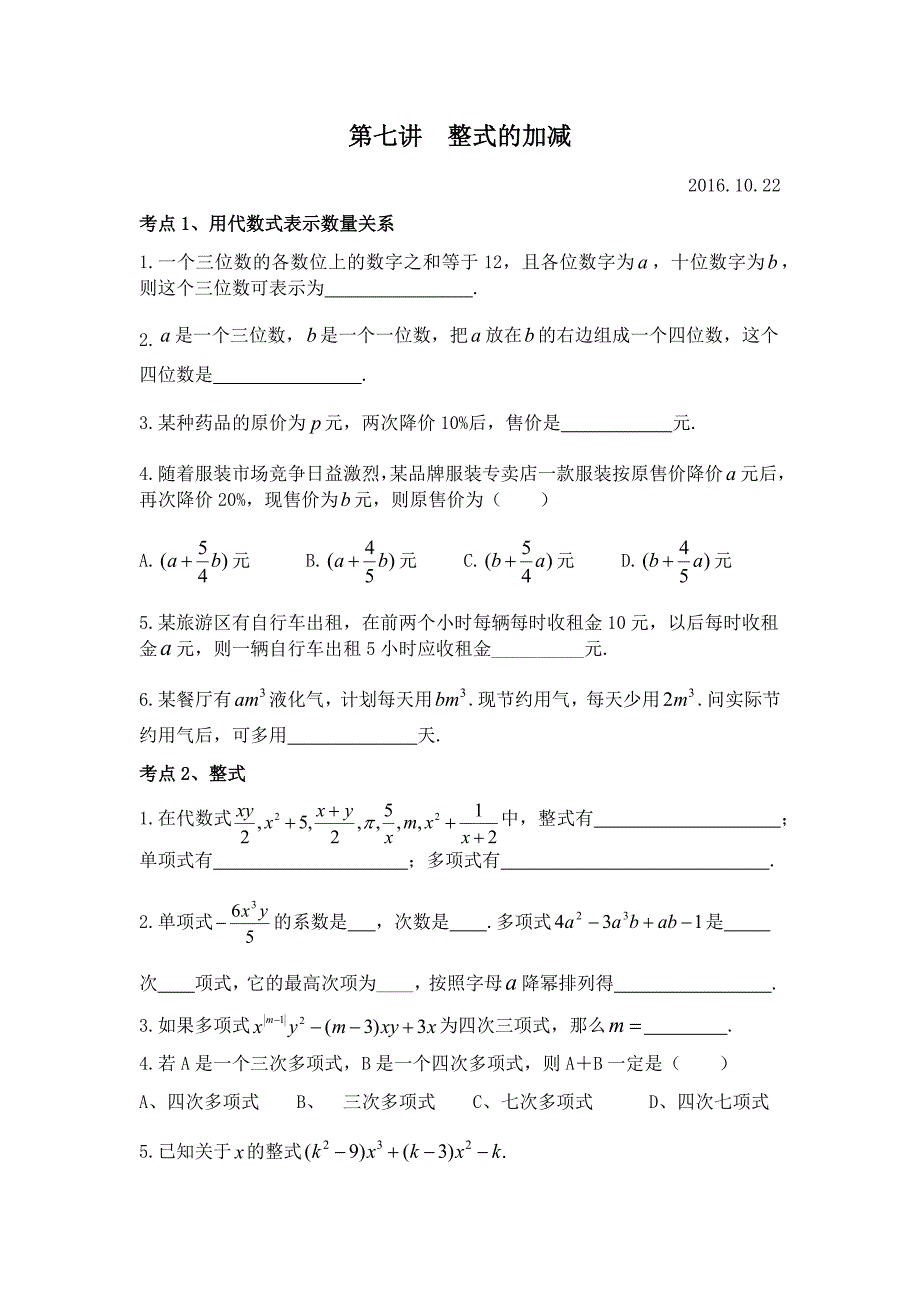 第七讲　整式的加减
2016.10.22
考点 1、用代数式表示数量关系
1.一个三位数的各数位上的数字之和等于 12，且各位数字为 a，十位数字为 b，
则这个三位数可表示为________________.
2. a 是一个三位数，b 是一个一位数，把 a 放在 b 的右边组成一个四位数，这个
四位数是________________.
3.某种药品的原价为 p 元，两次降价 10%后，售价是____________元.
4.随着服装市场竞争日益激烈，某品牌服装专卖店一款服装按原售价降价 a 元后，
再次降价 20%，现售价为 b 元，则原售价为（　　）
A. (a+5/4 b) 元　　B. (a+4/5 b) 元　　C. (b+5/4 a) 元　　D. (b+4/5 a) 元
5.某旅游区有自行车出租，在前两个小时每辆每时收租金 10 元，以后每时收租
金 a 元，则一辆自行车出租 5 小时应收租金__________元.
6.某餐厅有 am³ 液化气，计划每天用 bm³.现节约用气，每天少用 2m³.问实际节
约用气后，可多用______________天.
考点 2、整式
1.在代数式 xy/2, x²+5, (x+y)/2, π, 5/x, m, x²+1/(x+2) 中，整式有____________________；
单项式有_____________________；多项式有_____________________________.
2.单项式 −6x³y/5 的系数是___，次数是____.多项式 4a²−3a³b+ab−1 是_____
次____项式，它的最高次项为____，按照字母 a 降幂排列得_________________.
3.如果多项式 x^|m−1| y²−(m−3)xy+3x 为四次三项式，那么 m=_________.
4.若 A 是一个三次多项式，B 是一个四次多项式，则 A＋B 一定是（　　）
A、四次多项式　　B、　三次多项式　　C、七次多项式　　　D、四次七项式
5.已知关于 x 的整式 (k²−9)x³+(k−3)x²−k.